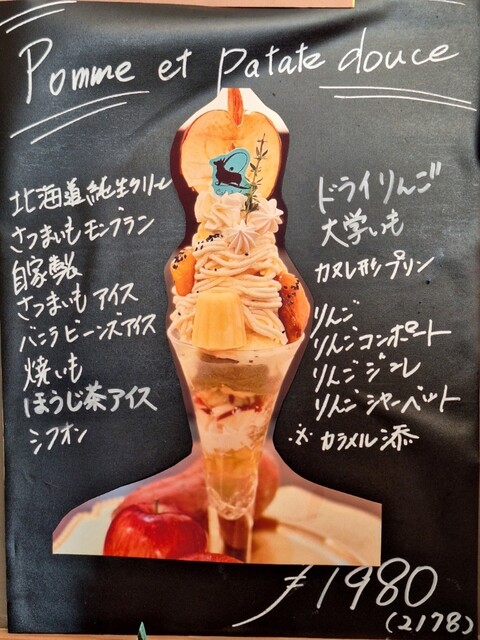 Pomme et patate douce
北海道純生クリーム
さつまいもモンブラン
自家製
さつまいもアイス
バニラビーンズアイス
焼いも
ほうじ茶アイス
シフォン
ドライりんご
大学いも
カヌレ形プリン
りんご
りんごコンポート
りんごジュレ
りんごシャーベット
※カラメル添
¥1980
(2178)